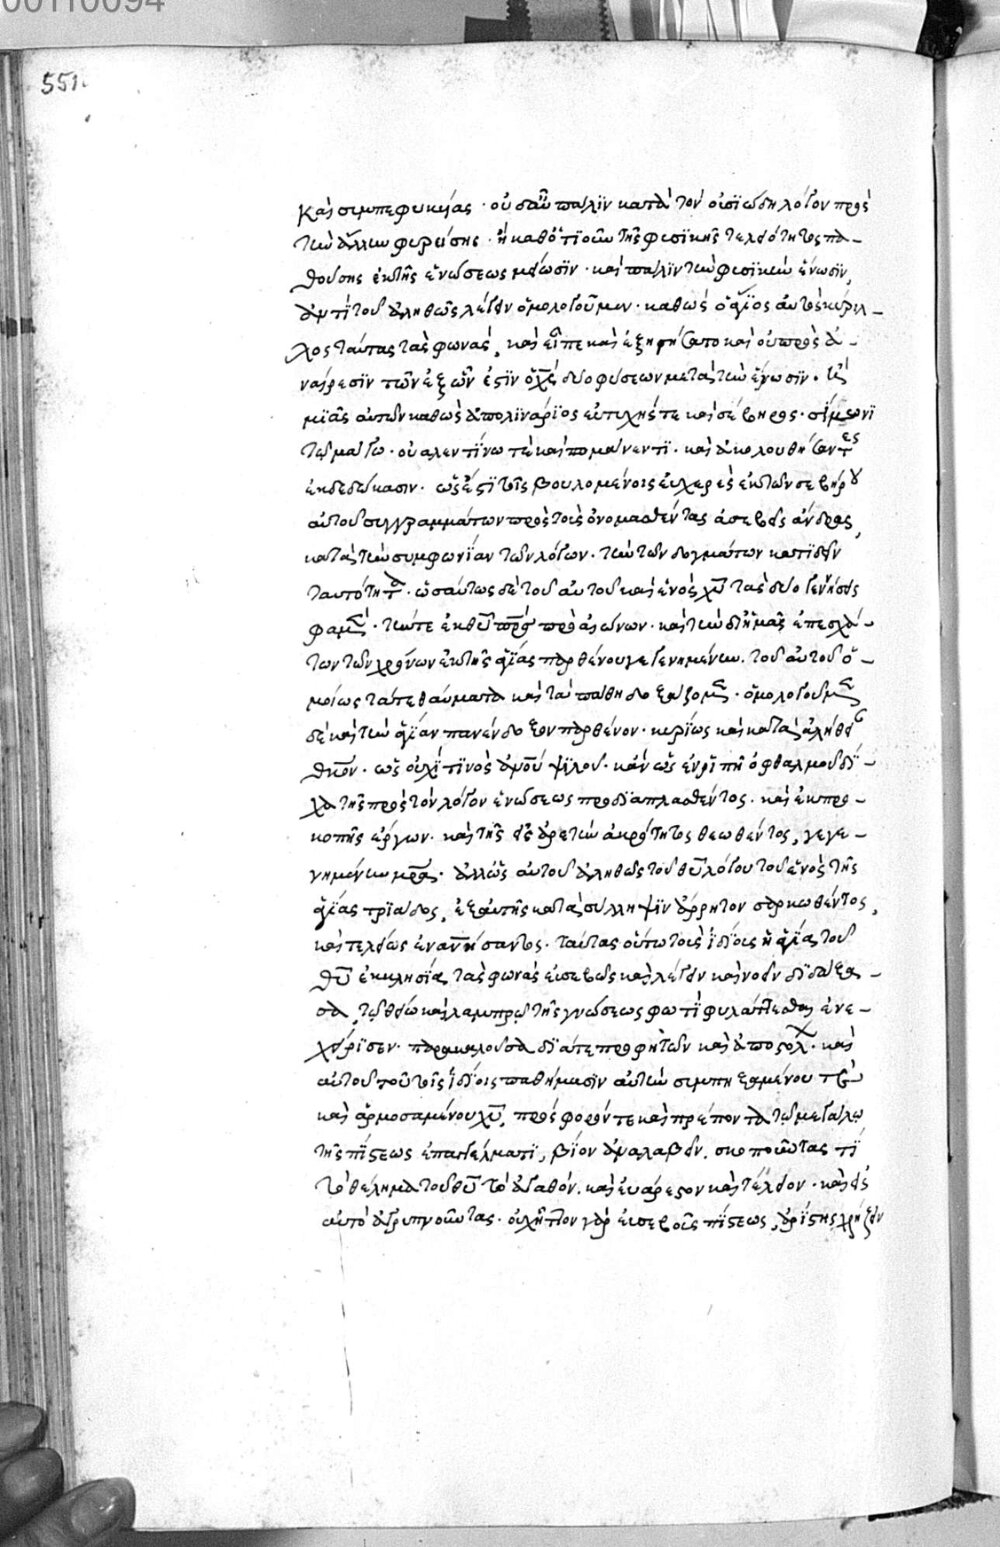 00110094
551
καὶ συμπεφυκυίας · οὐσῶν πάλϊν κατὰ τὸν οὐσϊώδη λόγον πρὸς
τὴν ἄλλην φυρείσης · ἢ καθότϊοῦν τῆς φυσϊκῆς τελειότητος πα-
θούσης ἐκ τῆς ἑνώσεως μείωσϊν · καὶ πάλϊν τὴν φυσϊκὴν ἕνωσϊν,
ἀντὶ τοῦ ἀληθῶς λέγειν ὁμολογοῦμεν · καθὼς ὁ ἅγϊος αὐτὸς κύριλ-
λος ταύτας τὰς φωνάς, καὶ εἶπε καὶ ἐξηγήσατο καὶ οὐ πρὸς ἀ-
ναίρεσϊν τῶν ἐξ ὧν ἐςϊν ὁ χς δύο φύσεων μετὰ τὴν ἕνωσϊν ·
μϊᾶς αὐτῶν καθὼς ἀπολϊνάρϊος εὐτυχής τε καὶ σέβηρος · σίμωνϊ
τῷ μάγω · οὐαλεντίνω τὲ καὶ πομαίνεντϊ · καὶ ἀκολουθήσαντες
ἐκδεδώκασιν · ὡς ἔςϊ τοῖς βουλομένοις εὐχερὲς ἐκ τῶν σεβήρου
αὐτοῦ συγγραμμάτων πρὸς τοὺς ὀνομασθέντας ἀσεβεῖς ἄνδρας,
κατὰ τὴν συμφωνίαν τῶν λόγων · τὴν τῶν δογμάτων κατϊδεῖν
ταυτότητα · ὡσαύτως δὲ τοῦ αὐτοῦ καὶ ἑνὸς χῦ τὰς δύο γεννήσεις
φαμὲν · τήν τε ἐκ θῦ πρς πρὸ αἰώνων · καὶ τὴν δἰ ἡμᾶς ἐπ' ἐσχά-
των τῶν χρόνων ἐκ τῆς ἁγίας παρθένου γεγενημένην · τοῦ αὐτοῦ ὁ-
μοίως τά τε θαύματα καὶ τὰ πάθη δοξάζομεν · ὁμολογοῦμεν
δὲ καὶ τὴν ἁγίαν πανένδοξον παρθένον · κυρίως καὶ κατὰ ἀλήθειαν
θκον · ὡς οὐχί τϊνος ἀνοῦ ψϊλοῦ · κἂν ὡς ἐν ῥιπῇ ὀφθαλμοῦ δϊ-
χα τῆς πρὸς τὸν λόγον ἑνώσεως προδϊαπλασθέντος · καὶ ἐκ προ-
κοπῆς ἔργων · καὶ τῆς εἰς ἀρετὴν ἀκρότητος θεωθέντος, γεγε-
νημένην μρα · ἀλλ' ὡς αὐτοῦ ἀληθῶς τοῦ θῦ λόγου τοῦ ἑνὸς τῆς
ἁγίας τρϊάδος, ἐξ αὐτῆς κατὰ σύλληψϊν ἄρρητον σαρκωθέντος,
καὶ τελείως ἐνανήσαντος · ταύτας οὕτω τοῖς ἰδίοις ἡ ἁγία τοῦ
θῦ ἐκκλησία τὰς φωνὰς εὐσεβῶς καὶ λέγειν καὶ νοεῖν δϊδάξα-
σα, τῷ θείω καὶ λαμπρῷ τῆς γνώσεως φωτὶ φυλάττεσθαι ἐνε-
χείρϊσεν · παρακαλοῦσα δϊά τε προφητῶν καὶ ἀποςόλ · καὶ
αὐτοῦ τοῦ τοῖς ἰδίοις παθήμασϊν αὐτὴν συμπηξαμένου
καὶ ἁρμοσαμένου χῦ, πρόσφορόν τε καὶ πρέποντα τῷ μεγάλω
τῆς πίςεως ἐπαγγέλματϊ, βίον ἀναλαβεῖν. σκοποῦντας τί
τὸ θέλημα τοῦ θῦ τὸ ἀγαθόν. καὶ εὐάρεςον καὶ τέλειον · καὶ εἰς
αὐτὸ ἀγρυπνοῦντας · οἰκῆτον γὰρ εὐσεβοῦς πίςεως, ἀρίςης